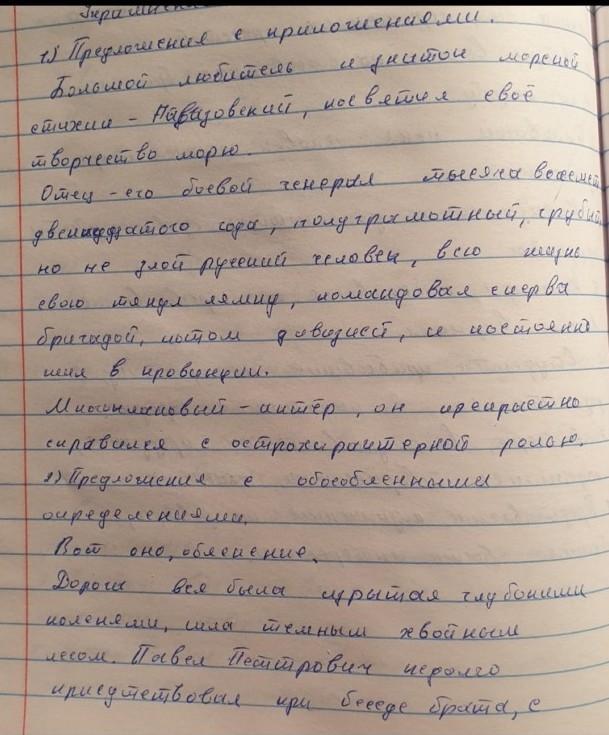 1) Предложения с приложениями.
Большой любитель и знаток морской
стихии - Айвазовский, посвятил своё
творчество морю.
Отец - его боевой генерал тысяча восемст
двенадцатого года, полуграмотный, грубый,
но не злой русский человек, всю жизнь
свою тянул лямку, командовал сперва
бригадой, потом дивизией, и постоянно
жил в провинции.
- актёр, он прекрасно
справился с острохарактерной ролью.
2) Предложения с обособленными
определениями.
Вот оно, обяснение.
Дорога вся была изрытая глубокими
колеями, шла темным хвойным
лесом. Павел Петтрович недолго
присутствовал при беседе брата, с